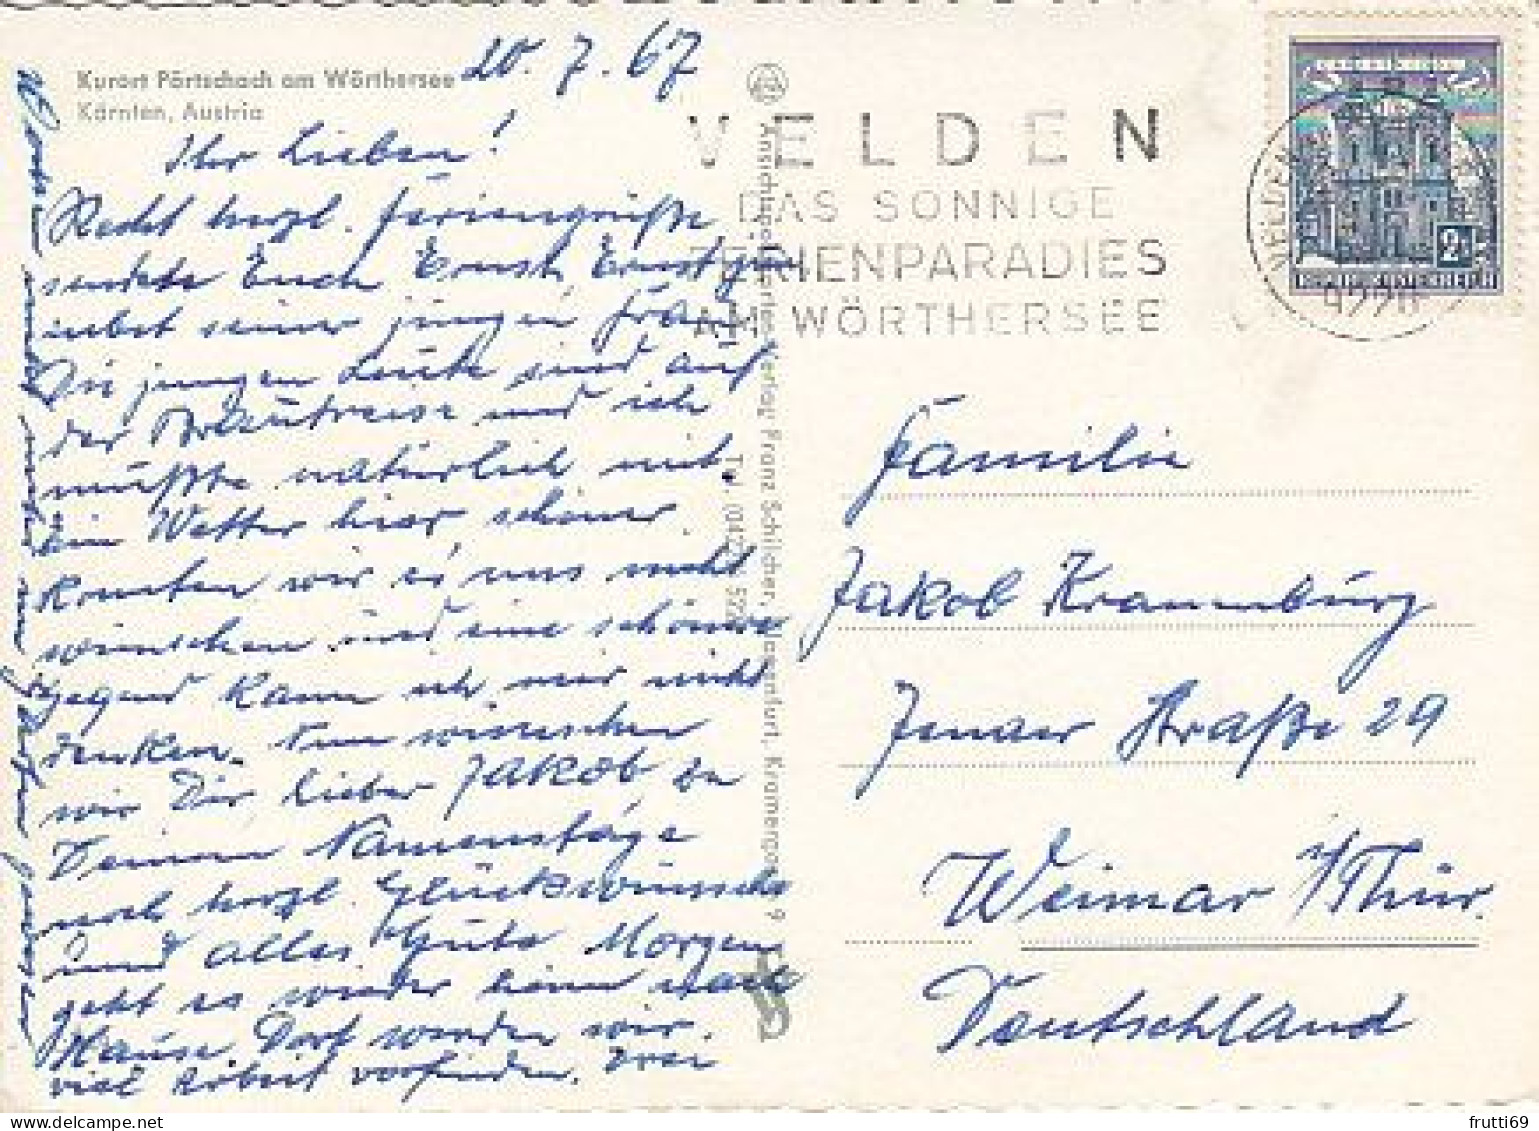 Kurort Pörtschach am Wörthersee
Kärnten, Austria
20.7.67
Ihr Lieben!
Recht herzl. Feriengrüße
sendet Euch Ernst, Ernstjun
nebst seiner jungen Frau,
Die jungen Leute sind auf
der Brautreise und ich
mußte natürlich mit.
Ein Wetter hier, schöner
konnten wir es uns nicht
wünschen und eine schönere
Gegend kann ich mir nicht
denken. Nun wünschen
wir Dir, lieber Jakob, zu
Deinem Namenstage
noch herzl. Glückwünsche
und alles Gute. Morgen
geht es wieder heim nach
Hause. Dort werden wir
viel Arbeit vorfinden.
Ansichtskartenverlag Franz Schilcher, Klagenfurt, Kramergasse 9
VELDEN
DAS SONNIGE
FERIENPARADIES
AM WÖRTHERSEE
VELDEN
9220
2
REPUBLIK ÖSTERREICH
Familie
Jakob Krannburg
Jenaer Straße 29
Weimar i/Thür.
Deutschland
frutti69